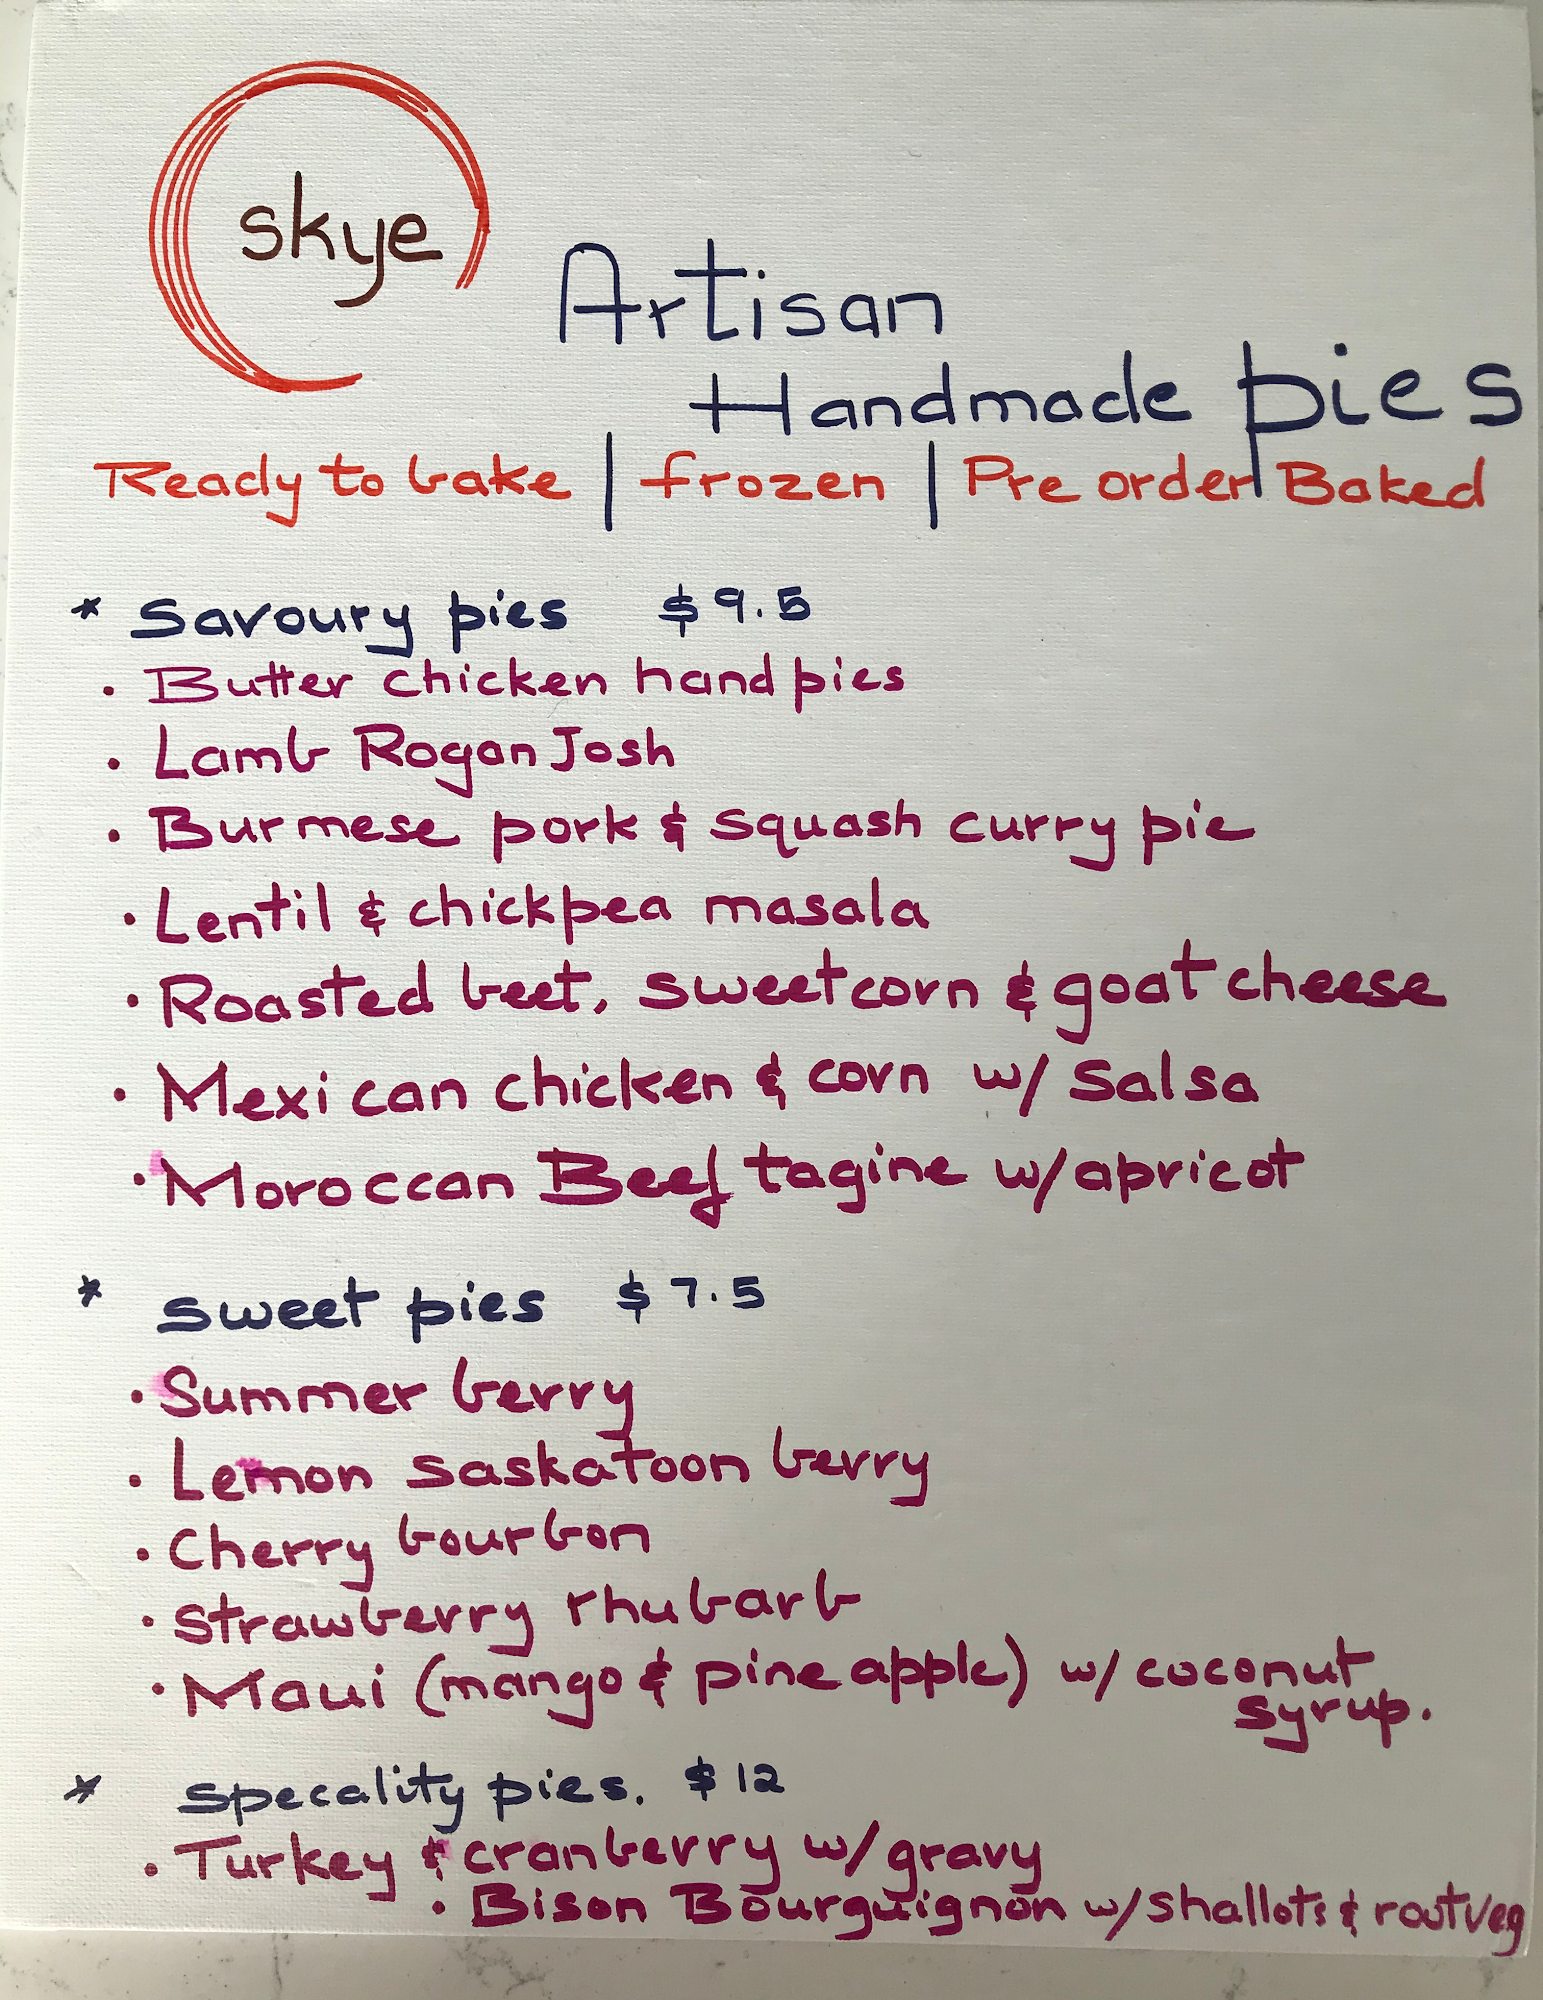 skye
Artisan
Handmade pies
Ready to bake | frozen | Pre order Baked
* Savoury pies $9.5
· Butter chicken hand pies
· Lamb Rogan Josh
· Burmese pork & squash curry pie
· Lentil & chickpea masala
· Roasted beet, sweetcorn & goat cheese
· Mexican chicken & corn w/ Salsa
· Moroccan Beef tagine w/ apricot
* Sweet pies $7.5
· Summer berry
· Lemon saskatoon berry
· Cherry bourbon
· Strawberry rhubarb
· Maui (mango & pineapple) w/ coconut
syrup.
* Specality pies. $12
· Turkey & cranberry w/ gravy
· Bison Bourguignon w/ shallots & root veg